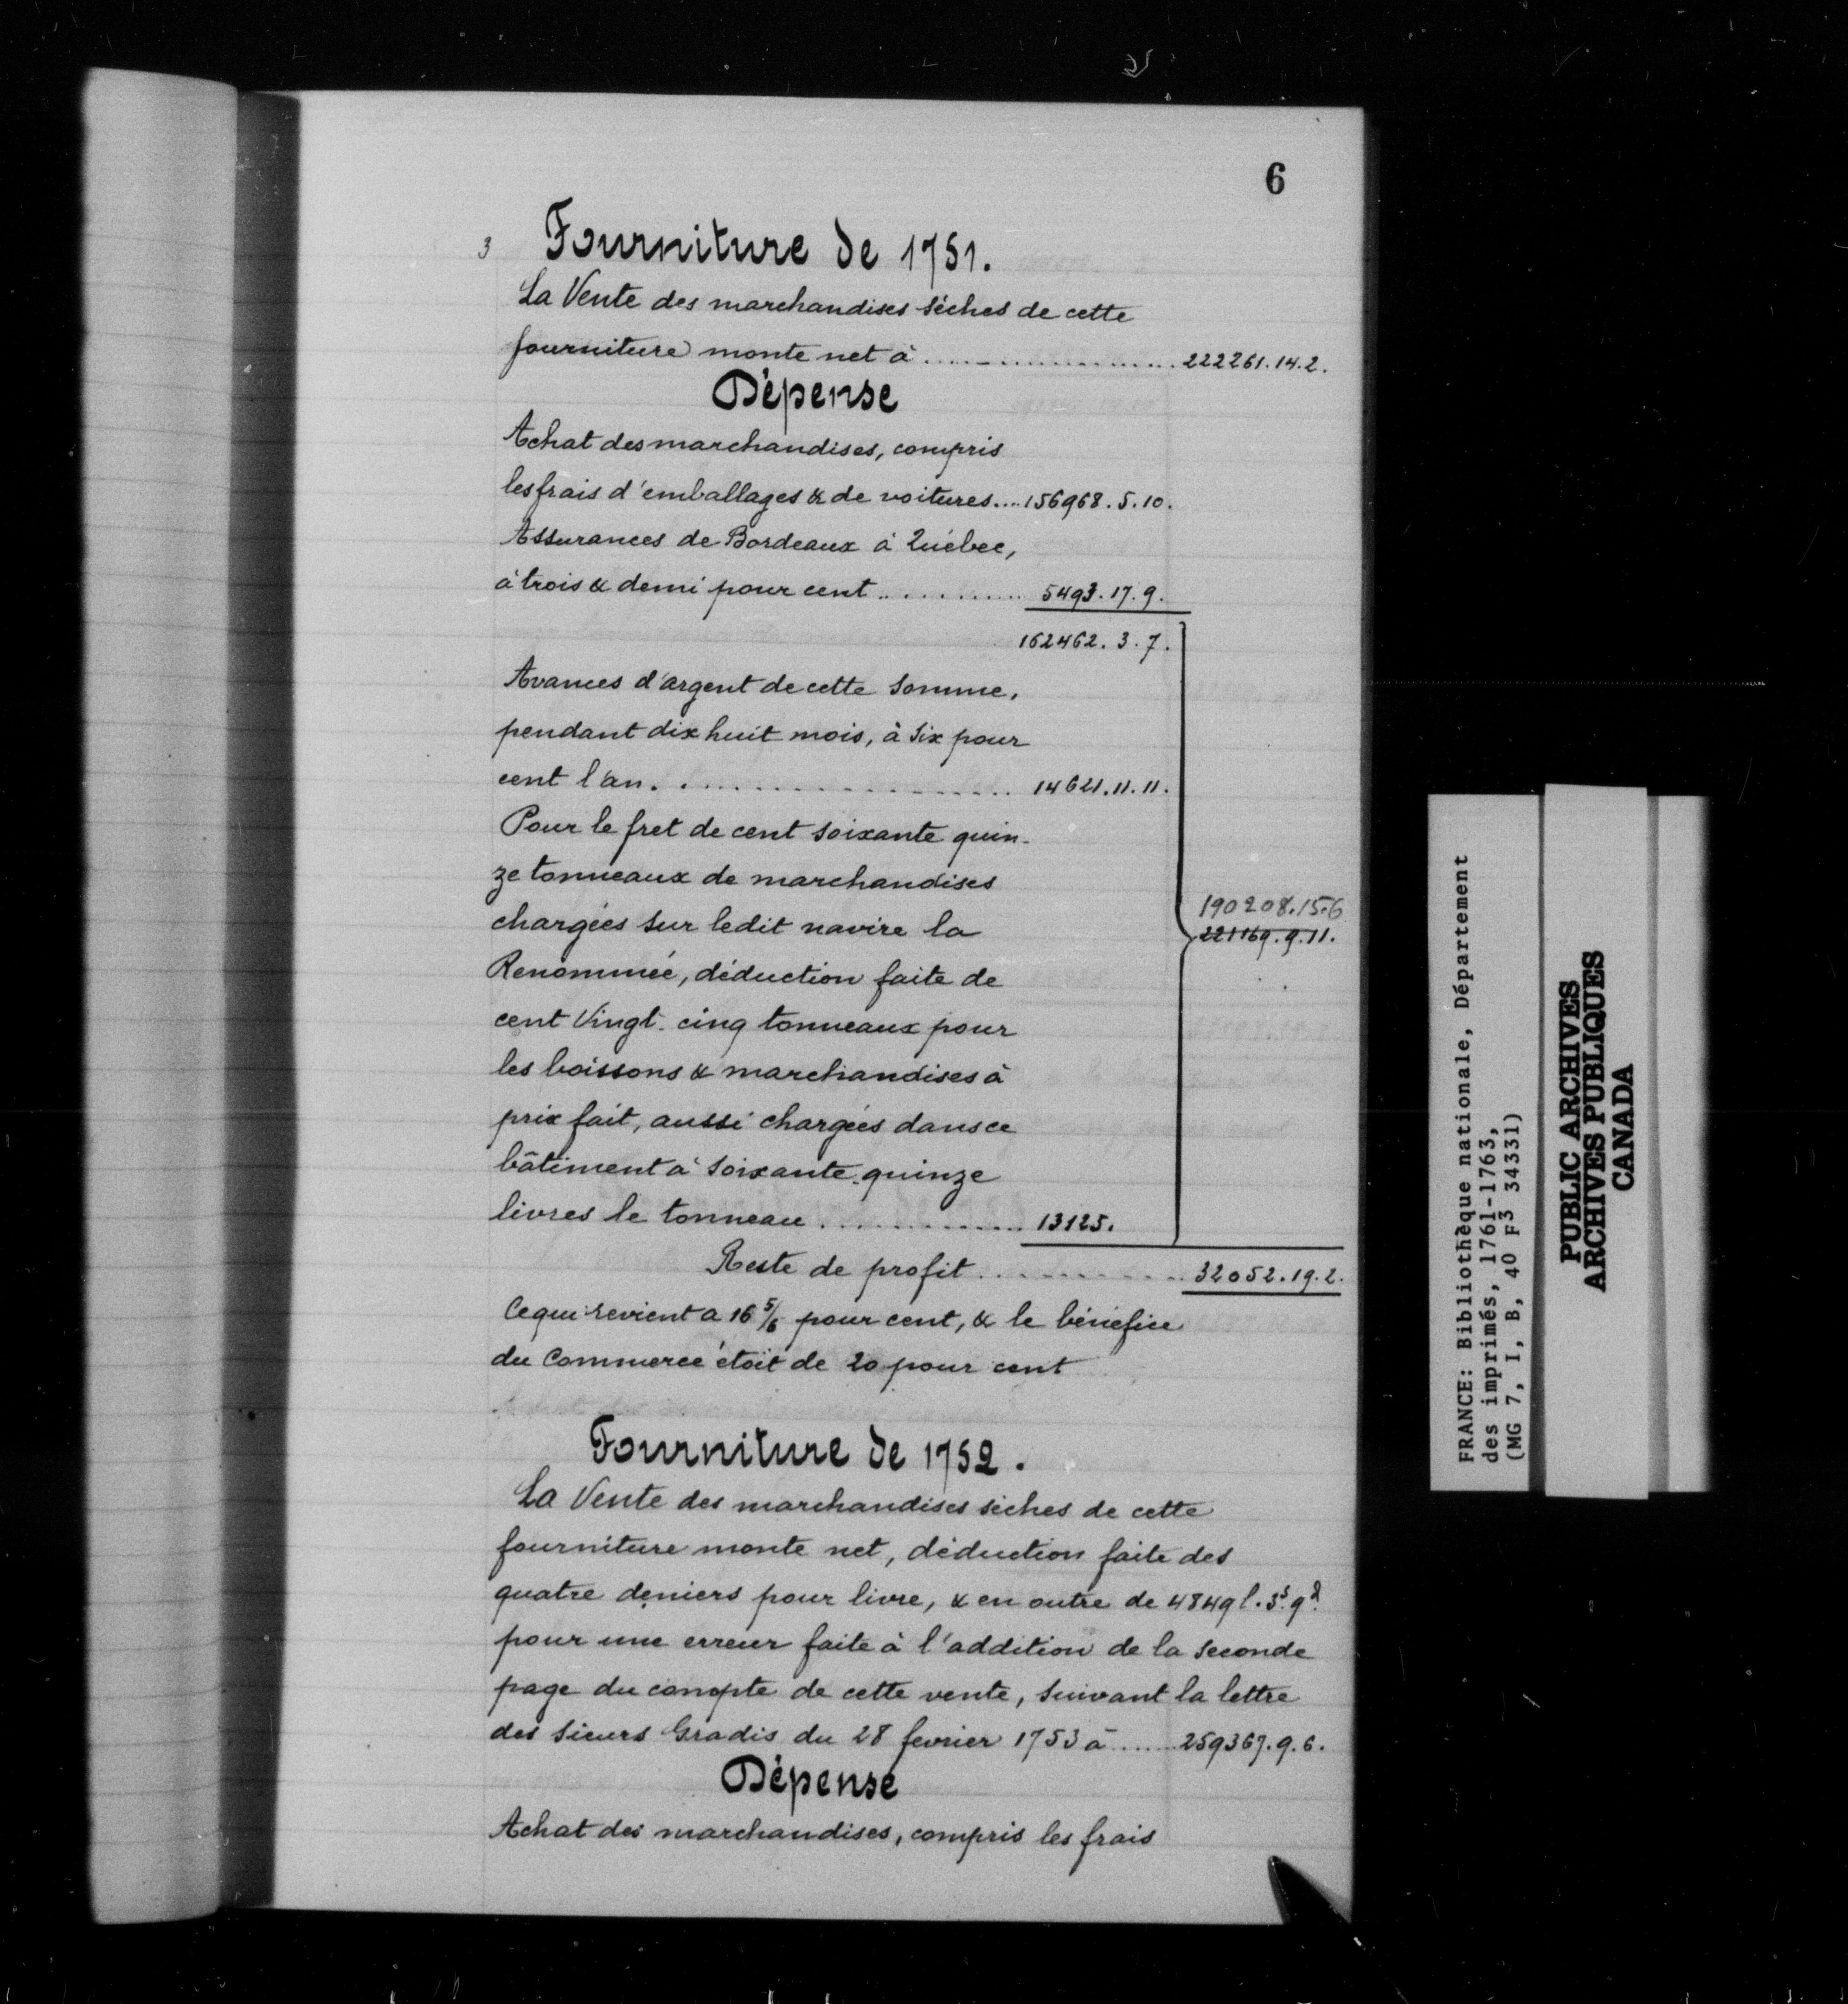 6
3 Fourniture de 1751.
La Vente des marchandises sèches de cette
fourniture monte net à .................. 222261.14.2.
Dépense
Achat des marchandises, compris
les frais d'emballages & de voitures.... 156968.5.10.
Assurances de Bordeaux à Québec,
à trois & demi pour cent ........... 5493.17.9.
162462.3.7.
Avances d'argent de cette somme,
pendant dix huit mois, à six pour
cent l'an. .................. 14621.11.11.
Pour le fret de cent soixante quin-
ze tonneaux de marchandises
chargées sur ledit navire la
190208.15.6
221169.9.11.
Renommée, déduction faite de
cent Vingt-cinq tonneaux pour
les boissons & marchandises à
prix fait, aussi chargées dans ce
bâtiment à soixante-quinze
livres le tonneau ............. 13125.
Reste de profit ........... 32052.19.2.
Ce qui revient a 16 5/6 pour cent, & le bénéfice
du Commerce étoit de 20 pour cent
Fourniture de 1752.
La Vente des marchandises sèches de cette
fourniture monte net, déduction faite des
quatre deniers pour livre, & en outre de 4849 l. 3s. 9d.
pour une erreur faite à l'addition de la seconde
page du compte de cette vente, suivant la lettre
des sieurs Gradis du 28 fevrier 1753 à ...... 259367.9.6.
Dépense
Achat des marchandises, compris les frais
FRANCE: Bibliothèque nationale, Département
des imprimés, 1761-1763,
(MG 7, I, B, 40 F3 34331)
PUBLIC ARCHIVES
ARCHIVES PUBLIQUES
CANADA